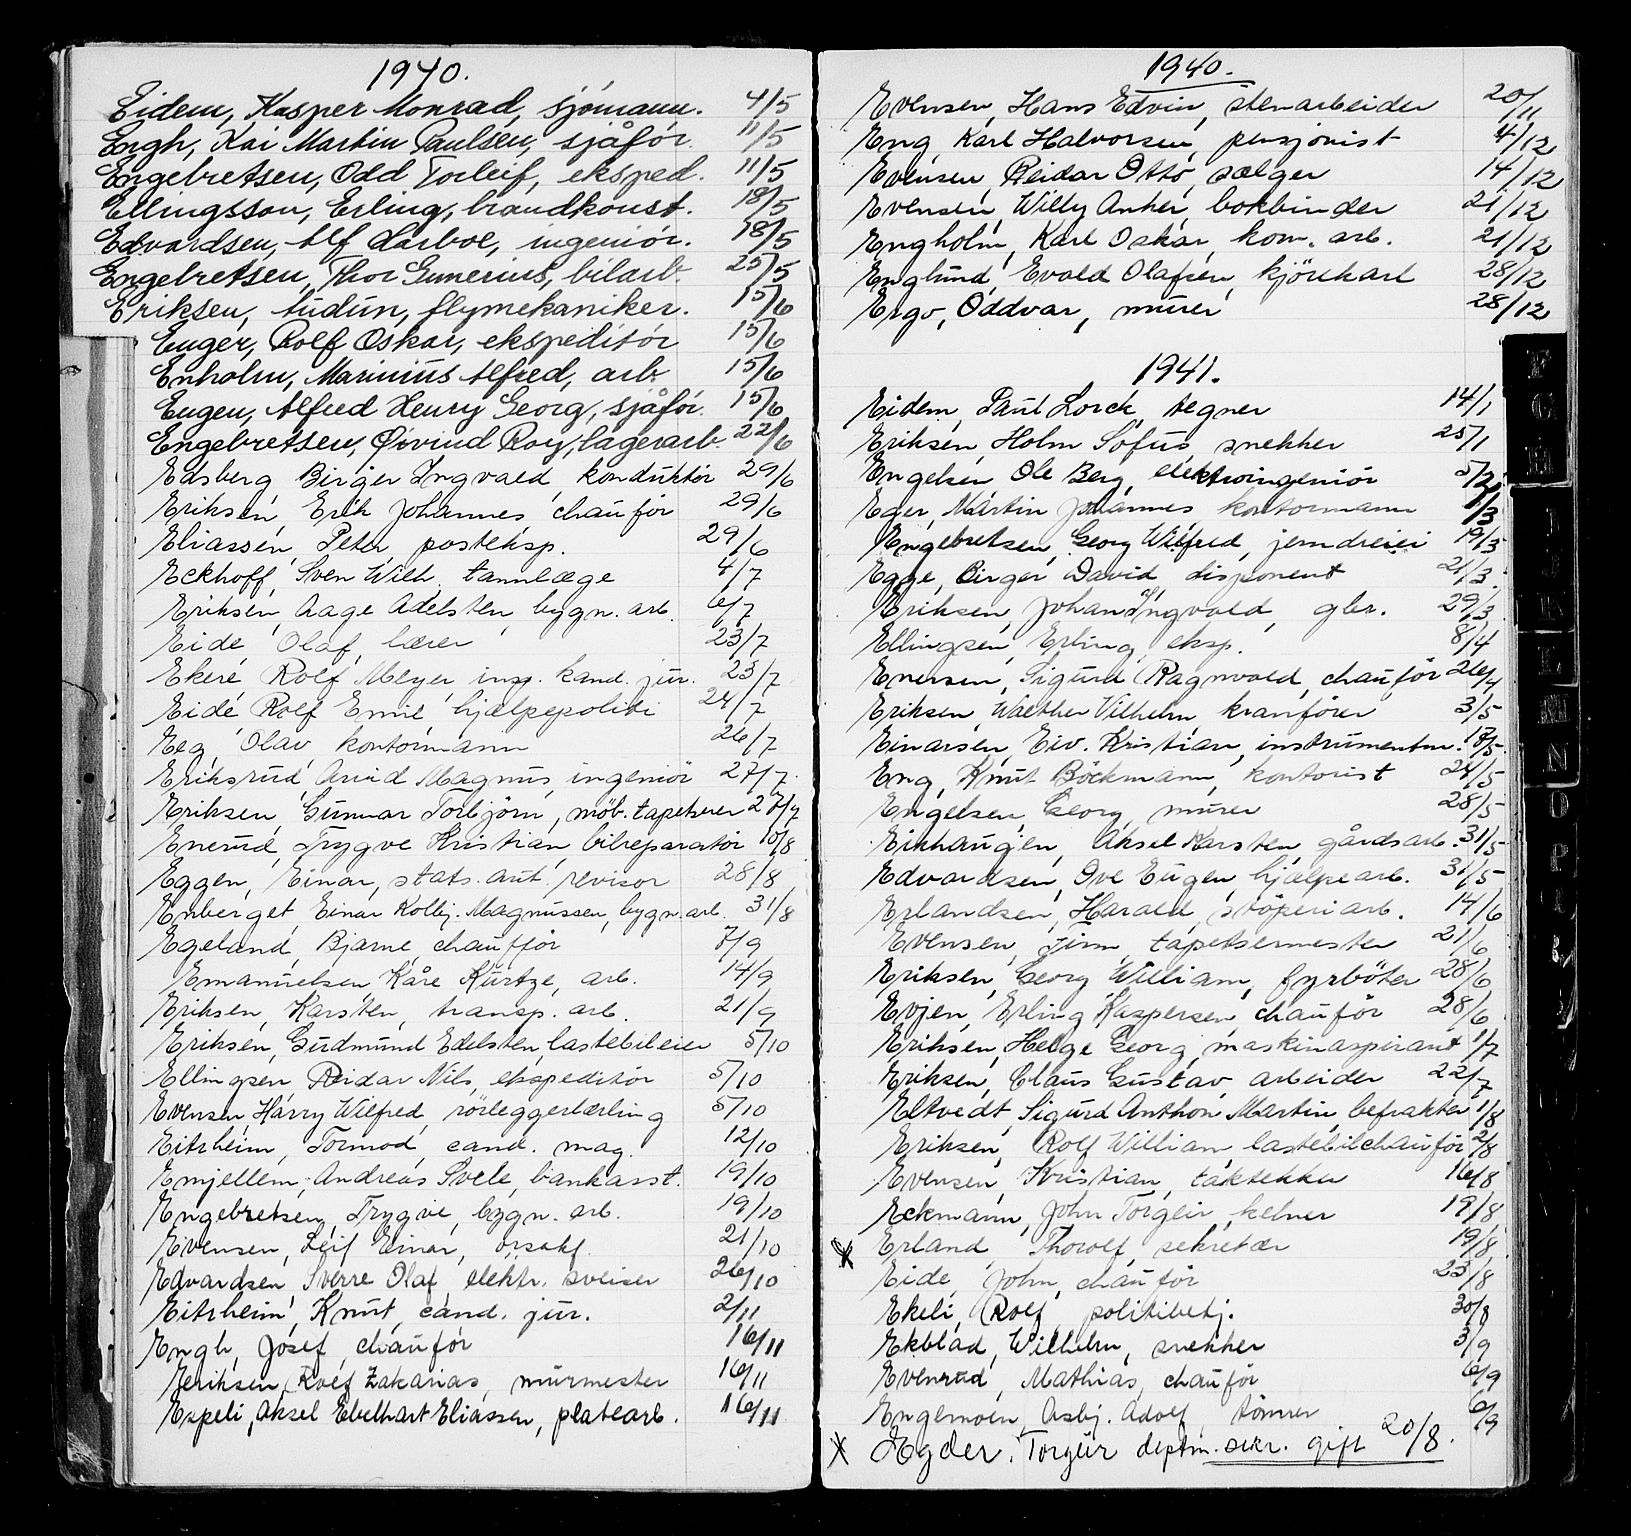 1940.
Eidem, Kasper Monrad, sjömann. 4/5
Engh, Kai Martin Paulsen, sjåför. 11/5
Engebretsen, Odd Torleif, eksped. 11/5
Ellingsson, Erling, brandkonst. 18/5
Edvardsen, Alf Aarboe, ingeniör. 18/5
Engebretsen, Thor Gunerius, bilarb. 25/5
Eriksen, Audun, flymekaniker. 15/6
Enger, Rolf Oskar, ekspeditör 15/6
Enholm, Marinius Alfred, arb. 15/6
Engen, Alfred Henry Georg, sjåför. 15/6
Engebretsen, Øivind Roy, lagerarb. 22/6
Edsberg Birger Ingvald, konduktör 29/6
Eriksen, Erik Johannes chauför 29/6
Eliassen, Peter, posteksp. 29/6
Eckhoff, Sven Wilh. tannlæge 4/7
Eriksen, Aage Adelsten, bygn. arb. 6/7
Eide Olaf, lærer 23/7
Ekeré Rolf Meyer insp. kand. jur. 23/7
Eide Rolf Emil hjælpepoliti 24/7
Eeg Olav kontormann 26/7
Eriksrud, Arvid Magnus, ingeniör 27/7
Eriksen, Gunnar Torbjörn, möb. tapetserer 27/7
Enerud, Trygve Kristian, bilreparatör 10/8
Eggen, Einar, stats. aut. revisor 28/8
Enberget, Einar Kolbj. Magnussen, bygn. arb. 31/8
Egeland, Bjarne, chafför 7/9
Emanuelsen Kåre Kurtze, arb. 14/9
Eriksen, Karsten, transp. arb. 21/9
Eriksen, Gudmund Edelsten, lastebileier 5/10
Ellingsen Reidar Nils, ekspeditör 5/10
Evensen, Harry Wilfred, rörleggerlærling 5/10
Eitrheim, Tormod, cand. mag. 12/10
Emjellem, Andreas Svele, bankasst. 19/10
Engebretsen, Trygve, bygn. arb. 19/10
Evensen, Leif Einar, 21/10
Edvardsen, Sverre Olaf elektr. sveiser 26/10
Eitrheim, Knut, cand. jur. 2/11
Engh, Josef, chauför 16/11
Eeriksen, Rolf Zakarias, murmester 16/11
Espeli, Aksel Ebelhart Eliassen, platearb. 16/11
1940.
Evensen, Hans Edvin, stenarbeider 20/11
Eng, Karl Halvorsen, pensjonist 4/12
Evensen, Reidar Otto, sælger 14/12
Evensen, Willy Anker, bokbinder 21/12
Engholm, Karl Oskar, kom. arb. 21/12
Englund, Evald Olafsen, kjörekarl 28/12
Ergo, Oddvar, murer 28/12
1941.
Eidem, Paul Lorck, tegner 14/1
Eriksen, Holm Sofus, snekker 25/1
Engelsen Ole Berg, elektroingeniör 5/2
Eger, Martin Johannes kontormann 1/3
Engebretsen, Georg Wilfred, jerndreier 19/3
Egge, Birger David disponent 21/3
Eriksen, Johan Ingvald, gbr. 29/3
Ellingsen, Erling, eksp. 8/4
Enersen, Sigurd Ragnvald, chauför 26/4
Eriksen, Walther Vilhelm, kranförer 3/5
Einarsen, Eiv. Kristian, instrumentm. 18/5
Eng, Knut Böckmann, kontorist 24/5
Engelsen, Georg, murer 28/5
Eikhaugen, Aksel Karsten gårdsarb. 31/5
Edvardsen, Ove Eugen, hjælpearb. 31/5
Erlandsen, Harald, stöperiarb. 14/6
Evensen, Jörn, tapetsermester 21/6
Eriksen, Georg William, fyrböter 28/6
Evjen, Erling Kaspersen, chauför 28/6
Eriksen, Helge Georg, maskinaspirant 1/7
Eriksen, Claus Gustav, arbeider 22/7
Eltvedt, Sigurd Anthon Martin, befrakter 1/8
Eriksen, Rolf William lastebilchauför 2/8
Evensen, Kristian, taktekker 16/8
Eckmann, John Torgeir, kelner 19/8
x Erland, Thorolf, sekretær 19/8
Eide, John, chauför 23/8
Ekeli, Rolf politibetj. 30/8
Ekblad, Wilhelm, snekker 3/9
Evenrud, Mathias, chauför 6/9
Engemoen, Asbj. Adolf, tömrer 6/9
x Ægder. Torgeir deptm. sekr. gift 20/8.
F G H I J K L M N O P